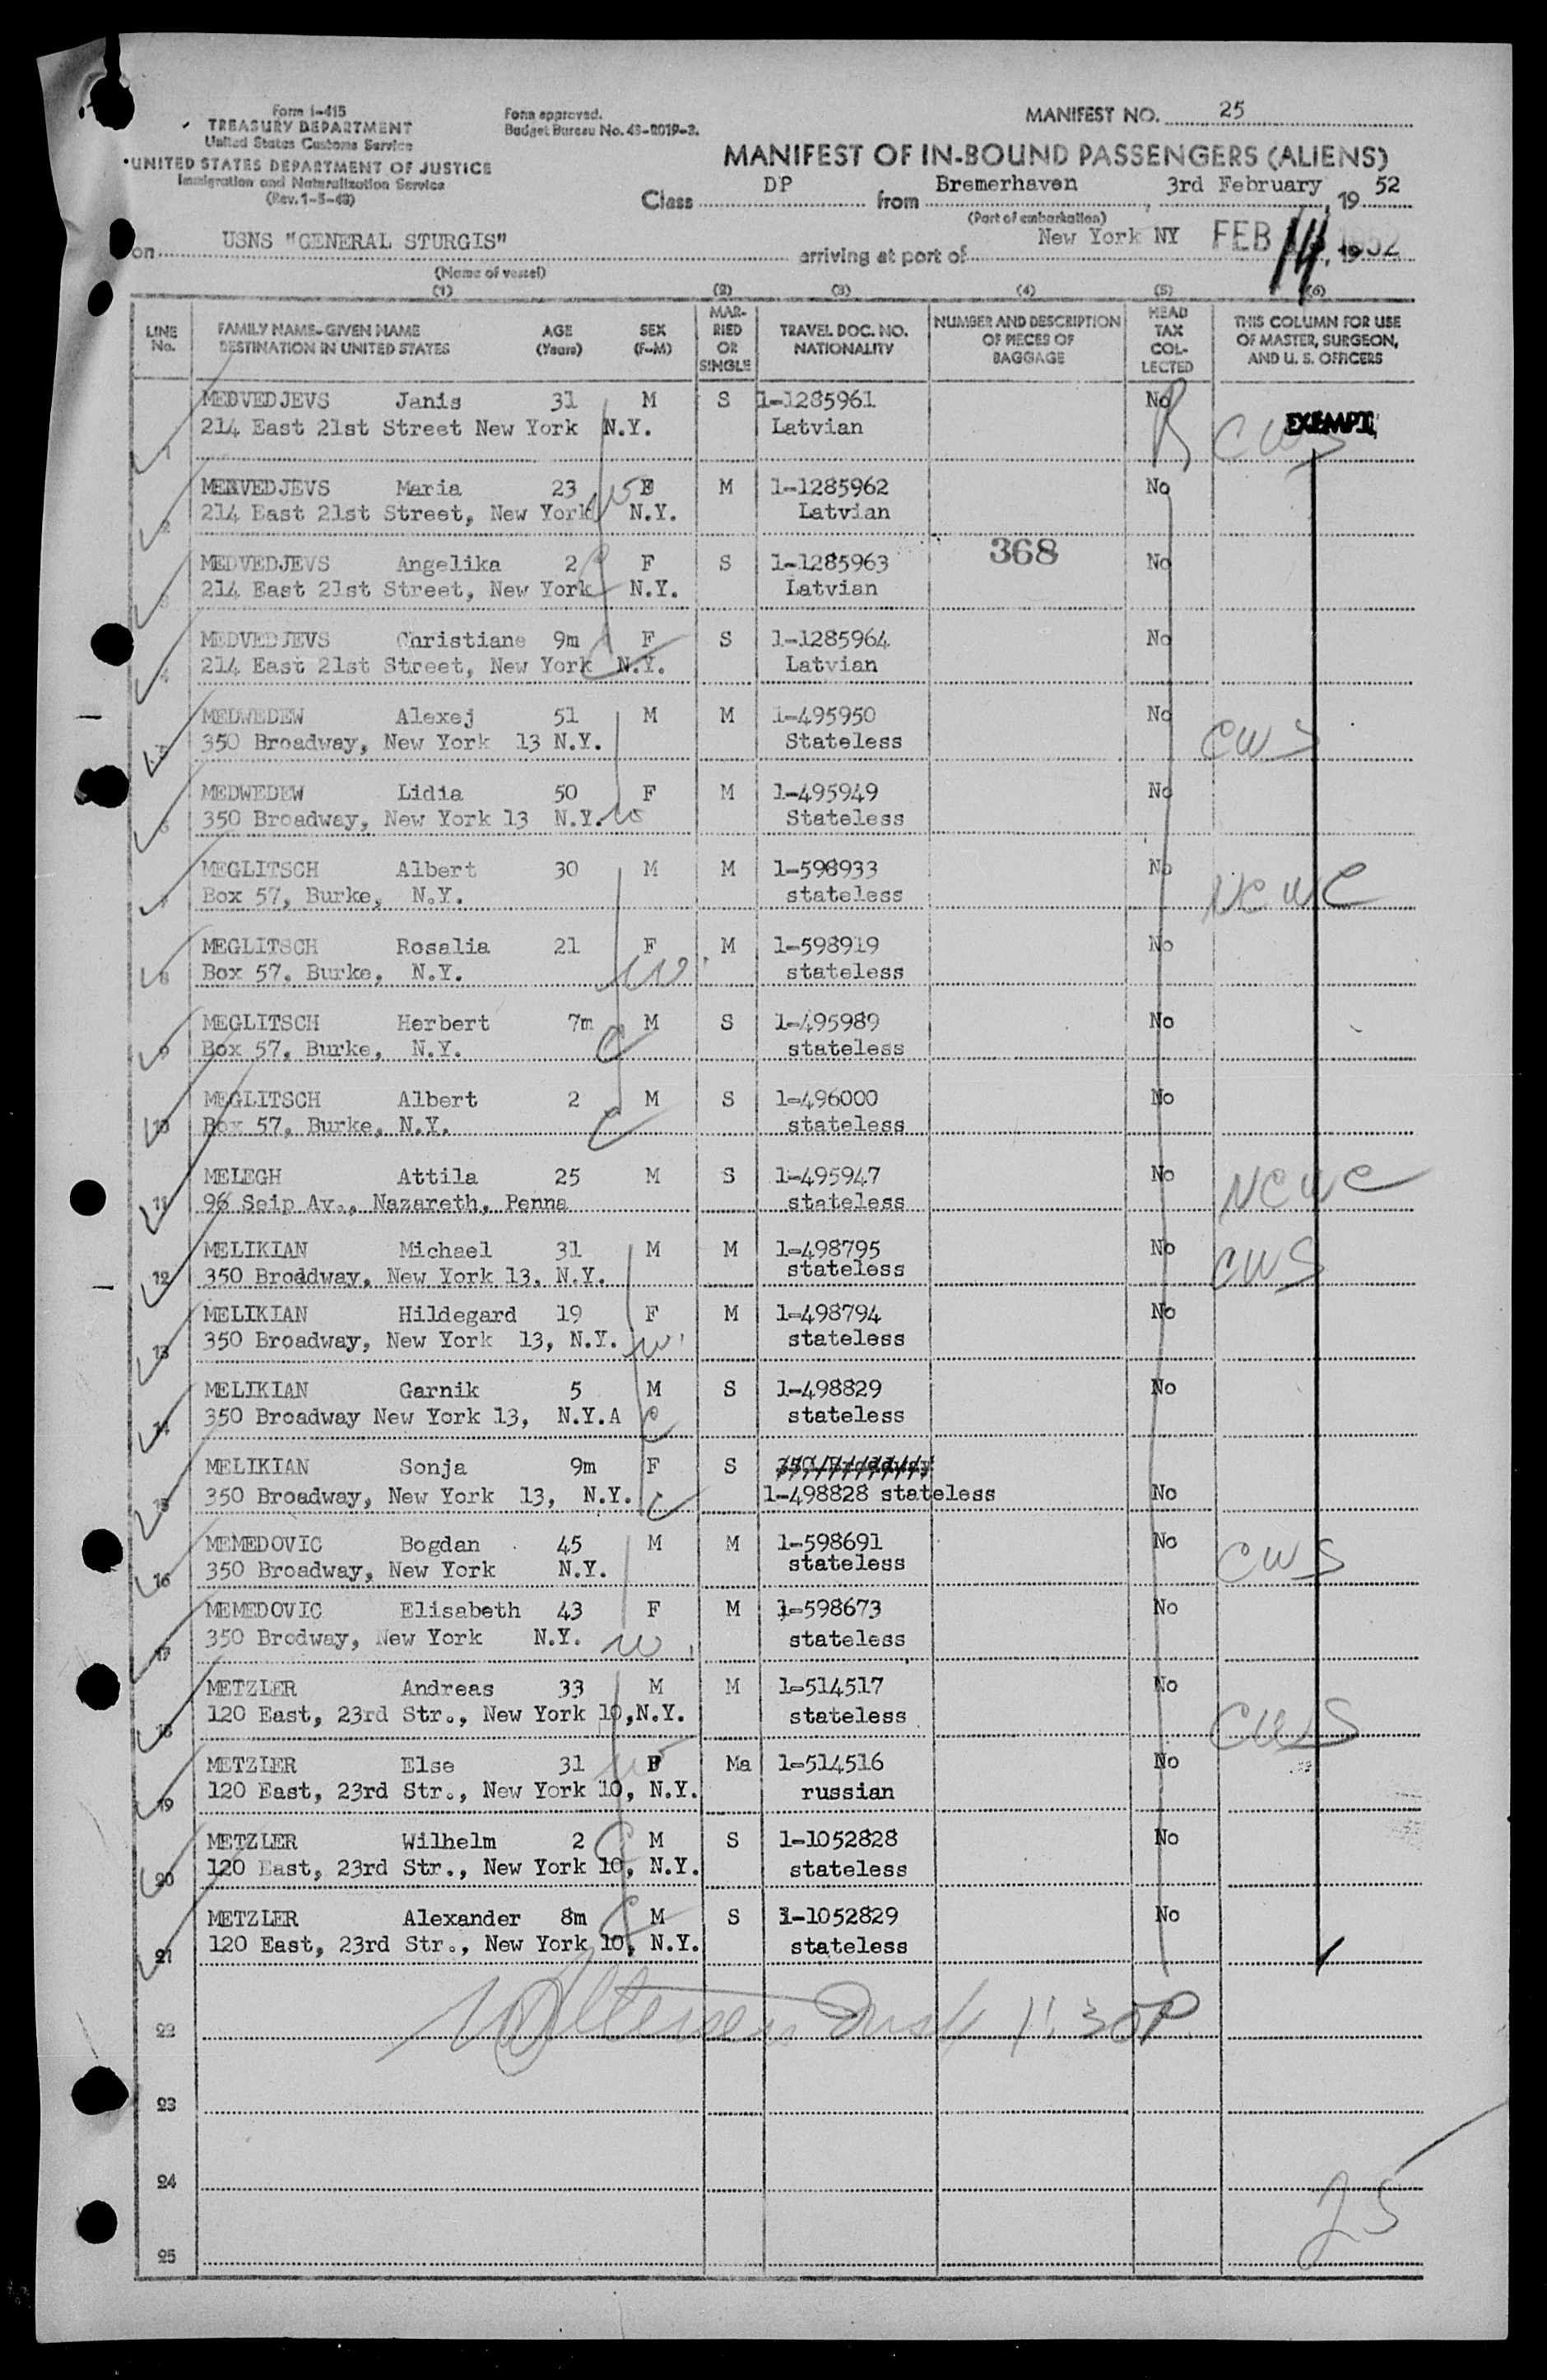 Form I-415
TREASURY DEPARTMENT
United States Customs Service
UNITED STATES DEPARTMENT OF JUSTICE
Immigration and Naturalization Service
(Rev. 1-5-49)
Form approved.
Budget Bureau No. 43-R019-3.
MANIFEST NO. 25
MANIFEST OF IN-BOUND PASSENGERS (ALIENS)
Class DP from Bremerhaven, 3rd February, 19 52
(Port of embarkation)
on USNS "GENERAL STURGIS" arriving at port of New York NY FEB 14, 1952
(Name of vessel)
(1) (2) (3) (4) (5) (6)
LINE No. FAMILY NAME-GIVEN NAME DESTINATION IN UNITED STATES AGE (Years) SEX (F-M) MARRIED OR SINGLE TRAVEL DOC. NO. NATIONALITY NUMBER AND DESCRIPTION OF PIECES OF BAGGAGE HEAD TAX COLLECTED THIS COLUMN FOR USE OF MASTER, SURGEON, AND U. S. OFFICERS
1 MEDVEDJEVS Janis 31 M S 1-1285961 No EXEMPT
214 East 21st Street New York N.Y. Latvian CWS
2 MEKVEDJEVS Maria 23 F M 1-1285962 No
214 East 21st Street, New York N.Y. Latvian
368
3 MEDVEDJEVS Angelika 2 F S 1-1285963 No
214 East 21st Street, New York N.Y. Latvian
4 MEDVEDJEVS Christiane 9m F S 1-1285964 No
214 East 21st Street, New York N.Y. Latvian
5 MEDWEDEW Alexej 51 M M 1-495950 No
350 Broadway, New York 13 N.Y. Stateless CWS
6 MEDWEDEW Lidia 50 F M 1-495949 No
350 Broadway, New York 13 N.Y. W Stateless
7 MEGLITSCH Albert 30 M M 1-598933 No
Box 57, Burke, N.Y. stateless NCWC
8 MEGLITSCH Rosalia 21 F M 1-598919 No
Box 57, Burke, N.Y. W stateless
9 MEGLITSCH Herbert 7m M S 1-495989 No
Box 57, Burke, N.Y. C stateless
10 MEGLITSCH Albert 2 M S 1-496000 No
Box 57, Burke, N.Y. C stateless
11 MELEGH Attila 25 M S 1-495947 No NCWC
96 Seip Av., Nazareth, Penna stateless
12 MELIKIAN Michael 31 M M 1-498795 No CWS
350 Broadway, New York 13, N.Y. stateless
13 MELIKIAN Hildegard 19 F M 1-498794 No
350 Broadway, New York 13, N.Y. W stateless
14 MELIKIAN Garnik 5 M S 1-498829 No
350 Broadway New York 13, N.Y.A C stateless
15 MELIKIAN Sonja 9m F S
350 Broadway, New York 13, N.Y. C 1-498828 stateless No
16 MEMEDOVIC Bogdan 45 M M 1-598691 No CWS
350 Broadway, New York N.Y. stateless
17 MEMEDOVIC Elisabeth 43 F M 1-598673 No
350 Brodway, New York N.Y. W stateless
18 METZLER Andreas 33 M M 1-514517 No
120 East, 23rd Str., New York 10, N.Y. stateless CWS
19 METZLER Else 31 F Ma 1-514516 No
120 East, 23rd Str., New York 10, N.Y. russian
20 METZLER Wilhelm 2 C M S 1-1052828 No
120 East, 23rd Str., New York 10, N.Y. stateless
21 METZLER Alexander 8m C M S 1-1052829 No
120 East, 23rd Str., New York 10, N.Y. stateless
22
23
24
25
25